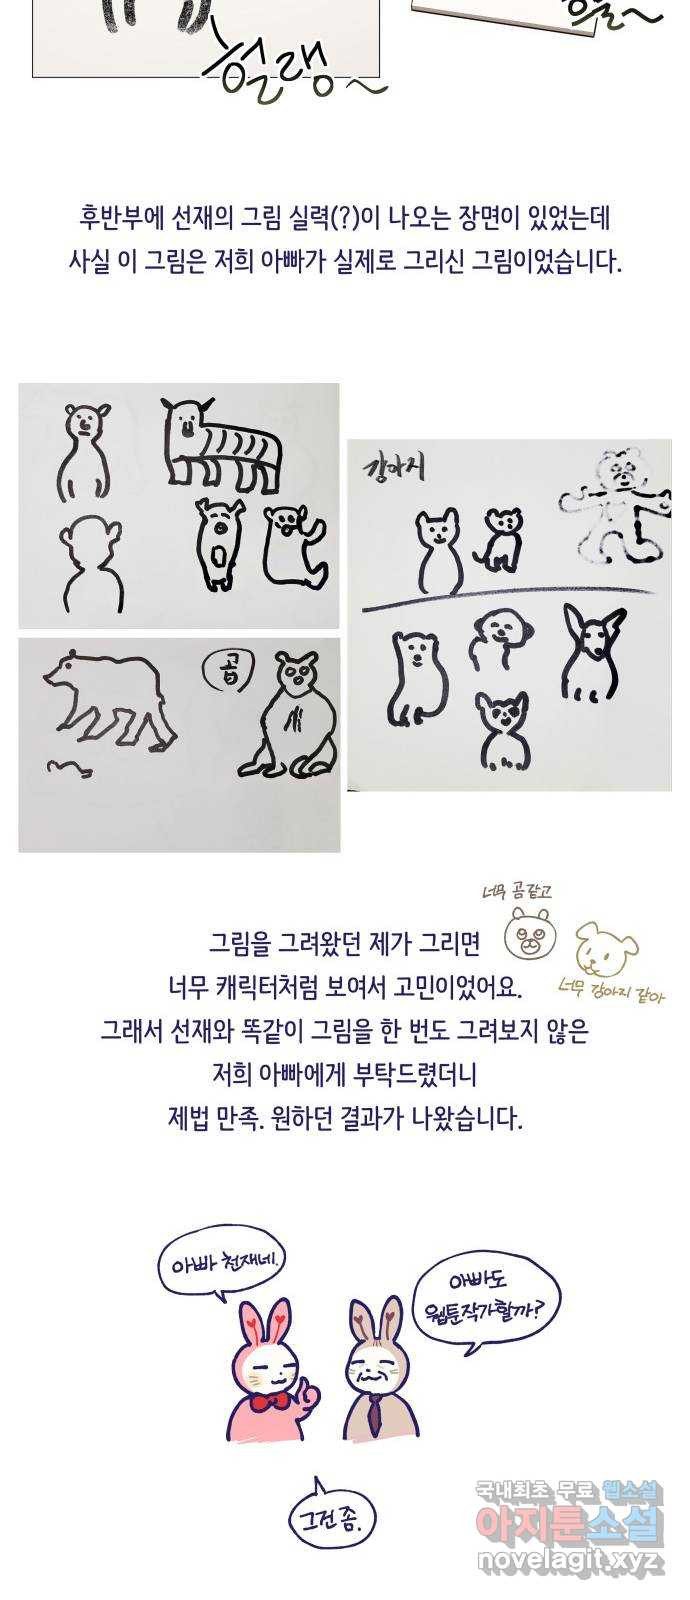 헐랭~
헐~
후반부에 선재의 그림 실력(?)이 나오는 장면이 있었는데
사실 이 그림은 저희 아빠가 실제로 그리신 그림이었습니다.
강아지
곰
너무 곰같고
너무 강아지 같아
그림을 그려왔던 제가 그리면
너무 캐릭터처럼 보여서 고민이었어요.
그래서 선재와 똑같이 그림을 한 번도 그려보지 않은
저희 아빠에게 부탁드렸더니
제법 만족. 원하던 결과가 나왔습니다.
아빠 천재네.
아빠도
웹툰작가할까?
그건 좀.
국내최초 무료 웹소설
아지툰소설
novelagit.xyz